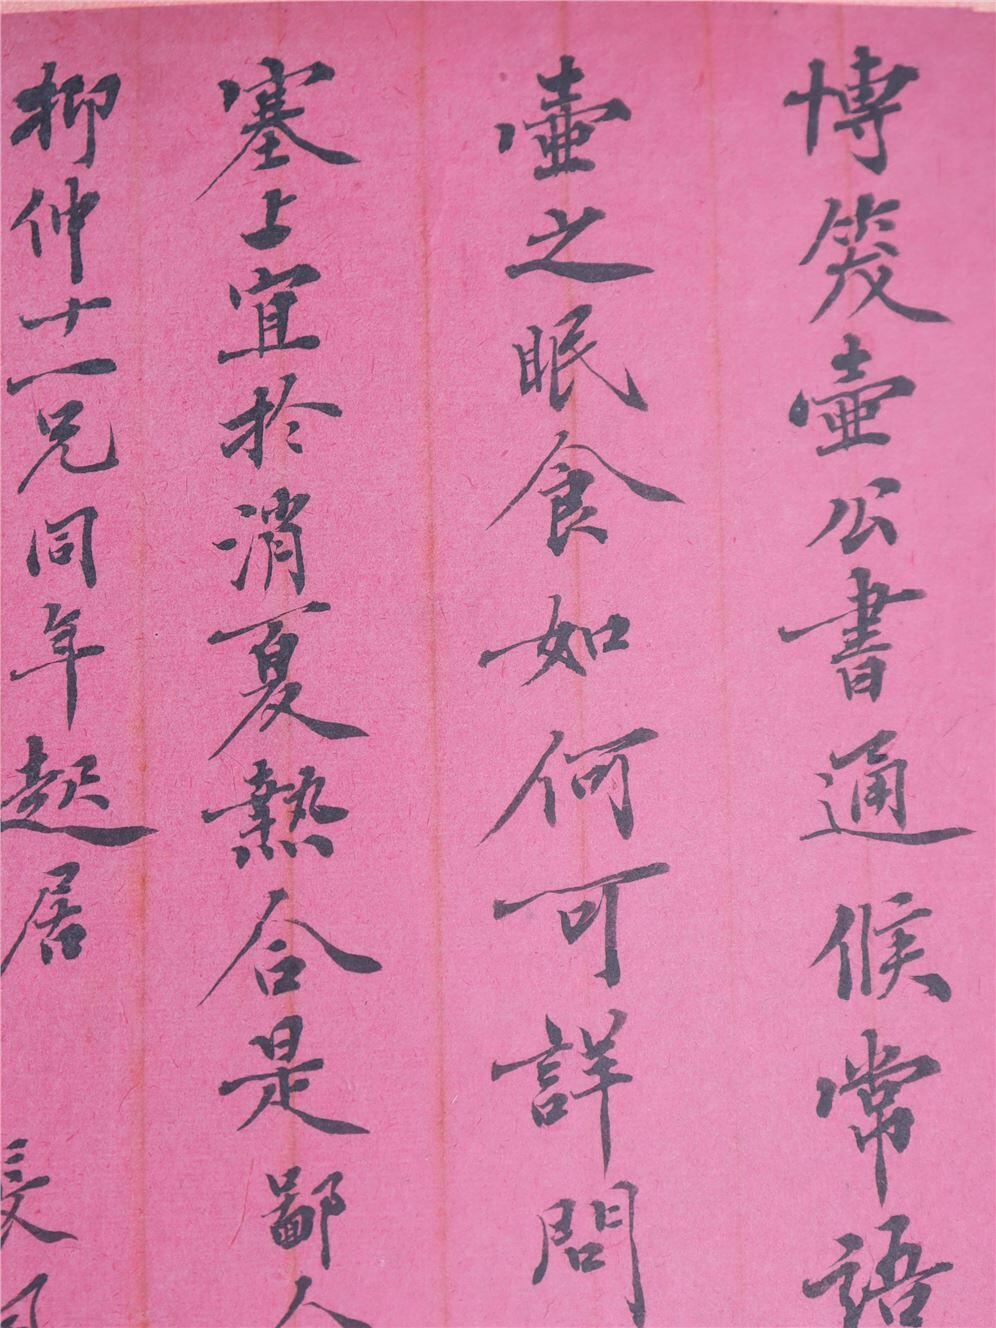 博笑壺公書通候常語
壺之眠食如何可詳問
塞上宜於消夏熱合是鄙人
柳仲十一兄同年起居